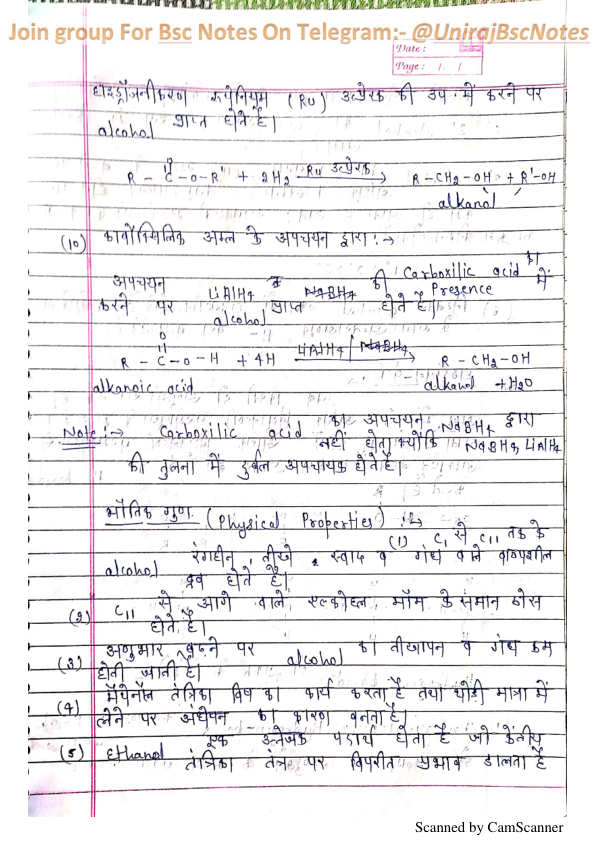 Join group For Bsc Notes On Telegram:- @UnirajBscNotes
Date :
Page :
हाइड्रॉजनीकरण रूथेनियम (Ru) उत्प्रेरक की उप. में करने पर
alcohol प्राप्त होते है।
O
R - C - O - R' + 2H2 Ru उत्प्रेरक R - CH2 - OH + R' - OH
alkanol
(10) कार्बोक्सिलिक अम्ल के अपचयन द्वारा :→
Carboxilic acid का
अपचयन LiAlH4 व NaBH4 की Presence में
करने पर alcohol प्राप्त होते है।
O
R - C - O - H + 4H LiAlH4/NaBH4 R - CH2 - OH
alkanoic acid alkanol + H2O
Note :→ Carboxilic acid का अपचयन NaBH4 द्वारा
नहीं होता क्योंकि NaBH4, LiAlH4
की तुलना में दुर्बल अपचायक होते है।
भौतिक गुण (Physical Properties) :→
(1) C1 से C11 तक के
alcohol रंगहीन, तीखे स्वाद व गंध वाले वाष्पशील
द्रव होते है।
(2) C11 से आगे वाले एल्कोहल मोम के समान ठोस
होते है।
(3) अनुभार बढ़ने पर alcohol का तीखापन व गंध कम
होती जाती है।
(4) मेथेनॉल तंत्रिका विष का कार्य करता है तथा थोडी मात्रा में
लेने पर अंधेपन का कारण बनता है।
(5) Ethanol एक उत्तेजक पदार्थ होता है जो केंद्रीय
तंत्रिका तंत्र पर विपरीत प्रभाव डालता है
Scanned by CamScanner